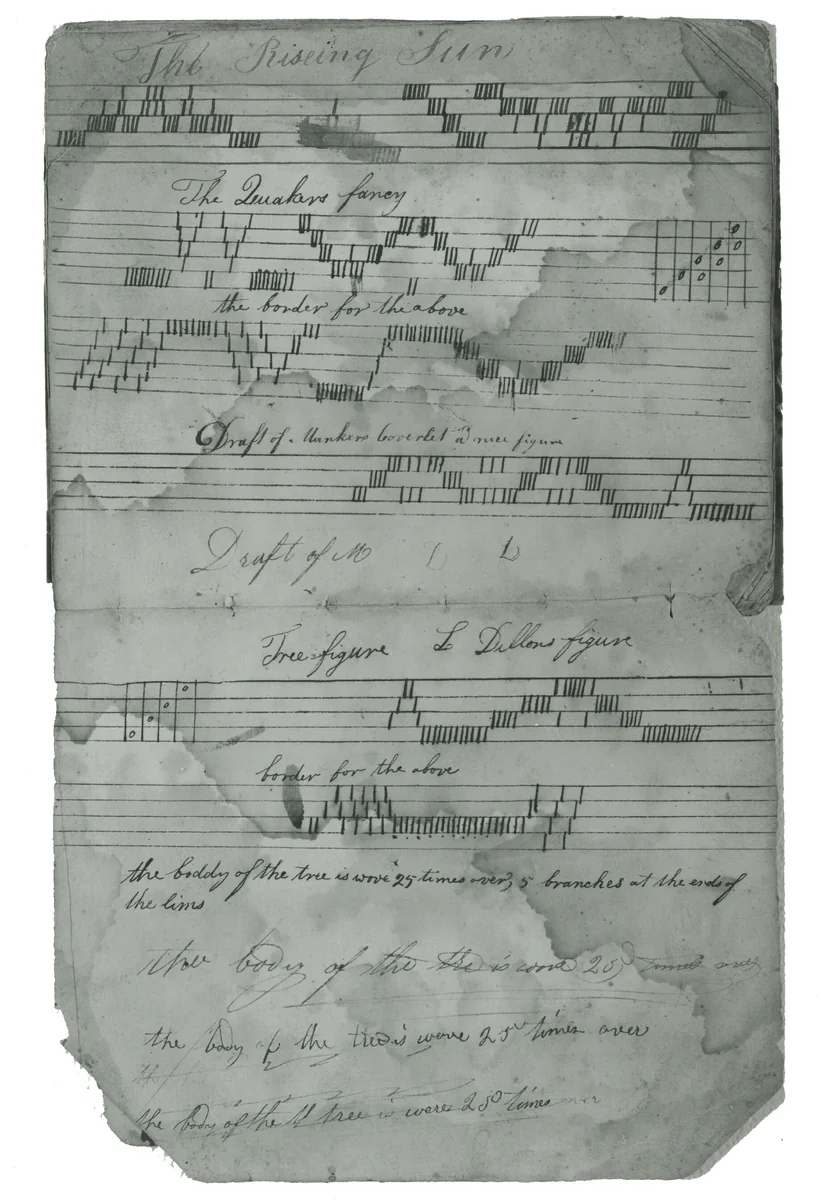 The Riseing Sun
The Quakers fancy
the border for the above
Draft of Coverlet a nice figure
Draft of M L L
Tree figure L Dillons figure
border for the above
the boddy of the tree is wove 25 times over, 5 branches at the ends of
the lims
the body of the tre is wove 25 times over
the body of the tree is wove 25 times over
the body of the tree is wove 25 times over